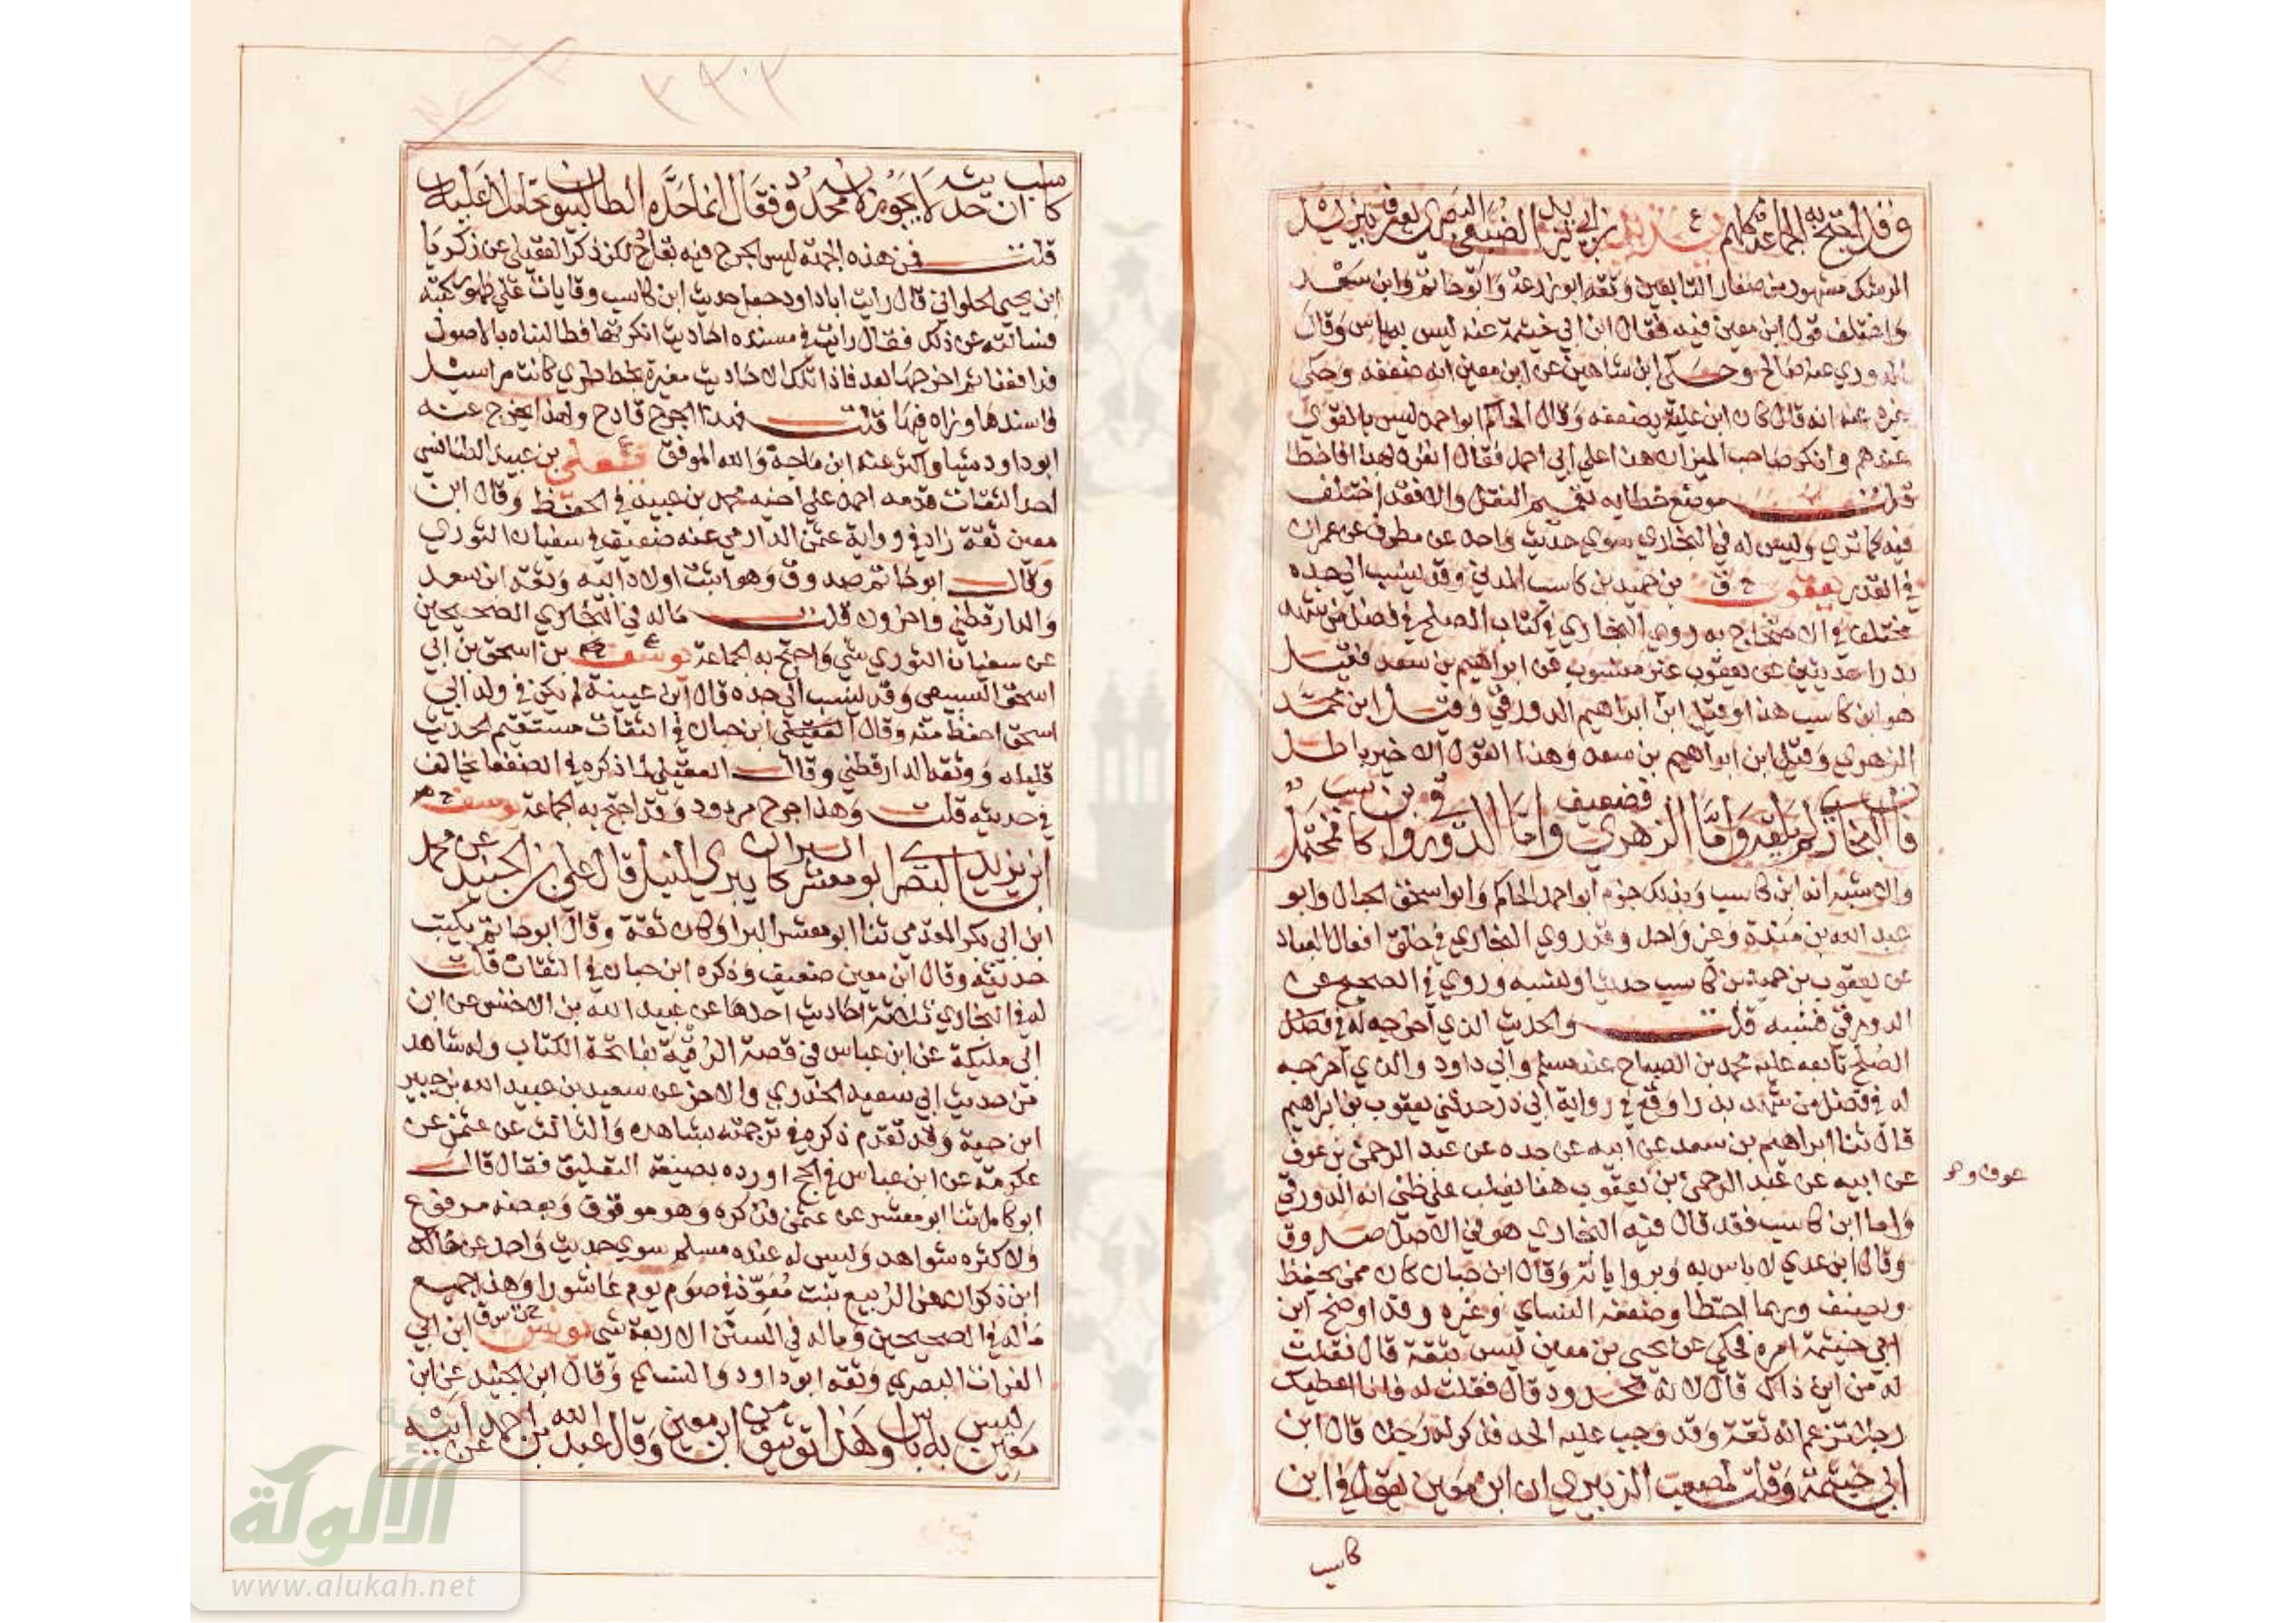 وقد احتج به الجماعة كلهم ع يزيد بن ابي يزيد الضبعي البصري يعرف بيزيد
الرشك مشهور من صغار التابعين وثقه ابو زرعة وابو حاتم وابن سعد
واختلف قول ابن معين فيه فقال ابن ابي خيثمة عنه ليس به باس وقال
الدوري عنه صالح وحكى ابن شاهين عن ابن معين انه ضعفه وحكى
غيره عنه انه قال كان ابن علية يضعفه وقال الحاكم ابو احمد ليس بالقوي
عندهم وانكر صاحب الميزان هذا على ابي احمد فقال انفرد بهذا فاخطا
قلت موضع خطايه تعميم النقل والا فقد اختلف
فيه كما ترى وليس له في البخاري سوى حديث واحد عن مطرف عن عمران
في القدر يعقوب خ ق بن حميد بن كاسب المدني وقد ينسب الى جده
مختلف في الاحتجاج به روى البخاري في كتاب الصلح في فضل من شهد
بدرا حديثين عن يعقوب غير منسوب عن ابراهيم بن سعد فقيل
هو ابن كاسب هذا وقيل ابن ابراهيم الدورقي وقيل ابن محمد
الزهري وقيل ابن ابراهيم بن سعد وهذا القول الاخير باطل
فان البخاري لم يلقه واما الزهري فضعيف واما الدورقي وابن كاسب فمحتمل
والاشبه انه ابن كاسب وبذلك جزم ابو احمد الحاكم وابو اسحق الحبال وابو
عبد الله بن مندة وغير واحد وقد روى البخاري في خلق افعال العباد
عن يعقوب بن حميد بن كاسب حديثا ونسبه وروى في الصحيح عن
الدورقي فنسبه قلت والحديث الذي اخرجه له في فضل
الصلح تابعه عليه محمد بن الصباح عند مسلم وابي داود والذي اخرجه
له في فضل من شهد بدرا وقع في رواية ابي ذر حدثني يعقوب بن ابراهيم
قال ثنا ابراهيم بن سعد عن ابيه عن جده عن عبد الرحمن بن عوف
عن ابيه عن عبد الرحمن بن يعقوب هنا يغلب على ظني انه الدورقي
عوف وهو
واما ابن كاسب فقد قال فيه البخاري هو في الاصل صدوق
وقال ابن عدي لا باس به وبرواياته وقال ابن حبان كان ممن يحفظ
ويصنف وربما اخطا وضعفه النساي وغيره وقد اوضح ابن
ابي خيثمة امره فحكى عن يحيى بن معين ليس بثقة قال فقلت
له من اين ذاك قال لانه محدود قال فقلت له فانا اعطيك
رجلا تزعم انه ثقة وقد وجب عليه الحد فذكر له رجلا قال ابن
ابي خيثمة وقلت لمصعب الزبيري ان ابن معين يقول في ابن
كاسب
كاسب ان حديثه لا يجوز لانه محدود فقال انما حده الطالبيون تحاملا عليه
قلت فمن هذه الجهة ليس الجرح فيه بقادح لكن ذكر العقيلي عن زكريا
ابن يحيى الحلواني قال رايت ابا داود جعل حديث ابن كاسب وقايات على ظهور كتبه
فسالته عن ذلك فقال راينا في مسنده احاديث انكرتها فطالبناه بالاصول
فدافعنا ثم اخرجها بعد فاذا تلك الاحاديث مغيرة بخط طري كانت مراسيل
فاسندها وزاد فيها قلت فهذا الجرح قادح ولهذا لم يخرج عنه
ابو داود شيا واكثر عنه ابن ماجة والله الموفق يعلى ع بن عبيد الطنافسي
احد الثقات قدمه احمد على اخيه محمد بن عبيد في الحفظ وقال ابن
معين ثقة زاد في رواية عثمن الدارمي عنه ضعيف في سفيان الثوري
وقال ابو حاتم صدوق وهو اثبت اولاد ابيه وثقه ابن سعد
والدارقطني واخرون قلت ماله في البخاري الصحيحين
عن سفيان الثوري شي واحتج به الجماعة يوسف ع بن اسحق بن ابي
اسحق السبيعي وقد ينسب الى جده قال ابن عيينة لم يكن في ولد ابي
اسحق احفظ منه وقال العقيلي ابن حبان في الثقات مستقيم الحديث
قليله ووثقه الدارقطني وقال العقيلي لما ذكره في الضعفا يخالف
في حديثه قلت وهذا جرح مردود وقد احتج به الجماعة يوسف خ م
ابن يزيد البصري ابو معشر البراء كان يبري النبل قال علي بن الجنيد عن محمد
ابن ابي بكر المقدمي ثنا ابو معشر البرا وكان ثقة وقال ابو حاتم يكتب
حديثه وقال ابن معين ضعيف وذكره ابن حبان في الثقات قلت
له في البخاري ثلاثة احاديث احدها عن عبيد الله بن الاخنس عن ابن
ابي مليكة عن ابن عباس في قصة الرقية بفاتحة الكتاب وله شاهد
من حديث ابي سعيد الخدري والاخر عن سعيد بن عبيد الله بن جبير
ابن حية وقد تقدم ذكره في ترجمته بشاهده والثالث عن عثمن عن
عكرمة عن ابن عباس في الحج اورده بصيغة التعليق فقال قال
ابو كامل ثنا ابو معشر عن عثمن فذكره وهو موقوف وبعضه مرفوع
ولاكثره شواهد وليس له عند مسلم سوى حديث واحد عن خالد
ابن ذكوان عن الربيع بنت معوذ في صوم يوم عاشورا وهذا جميع
ماله في الصحيحين وماله في السنن الاربعة شي يونس خ ت س ق ابن ابي
الفرات البصري وثقه ابو داود والنساي وقال ابن الجنيد عن ابن
معين ليس به باس وهذا توثيق من ابن معين وقال عبد الله بن احمد عن ابيه
الألوكة
www.alukah.net